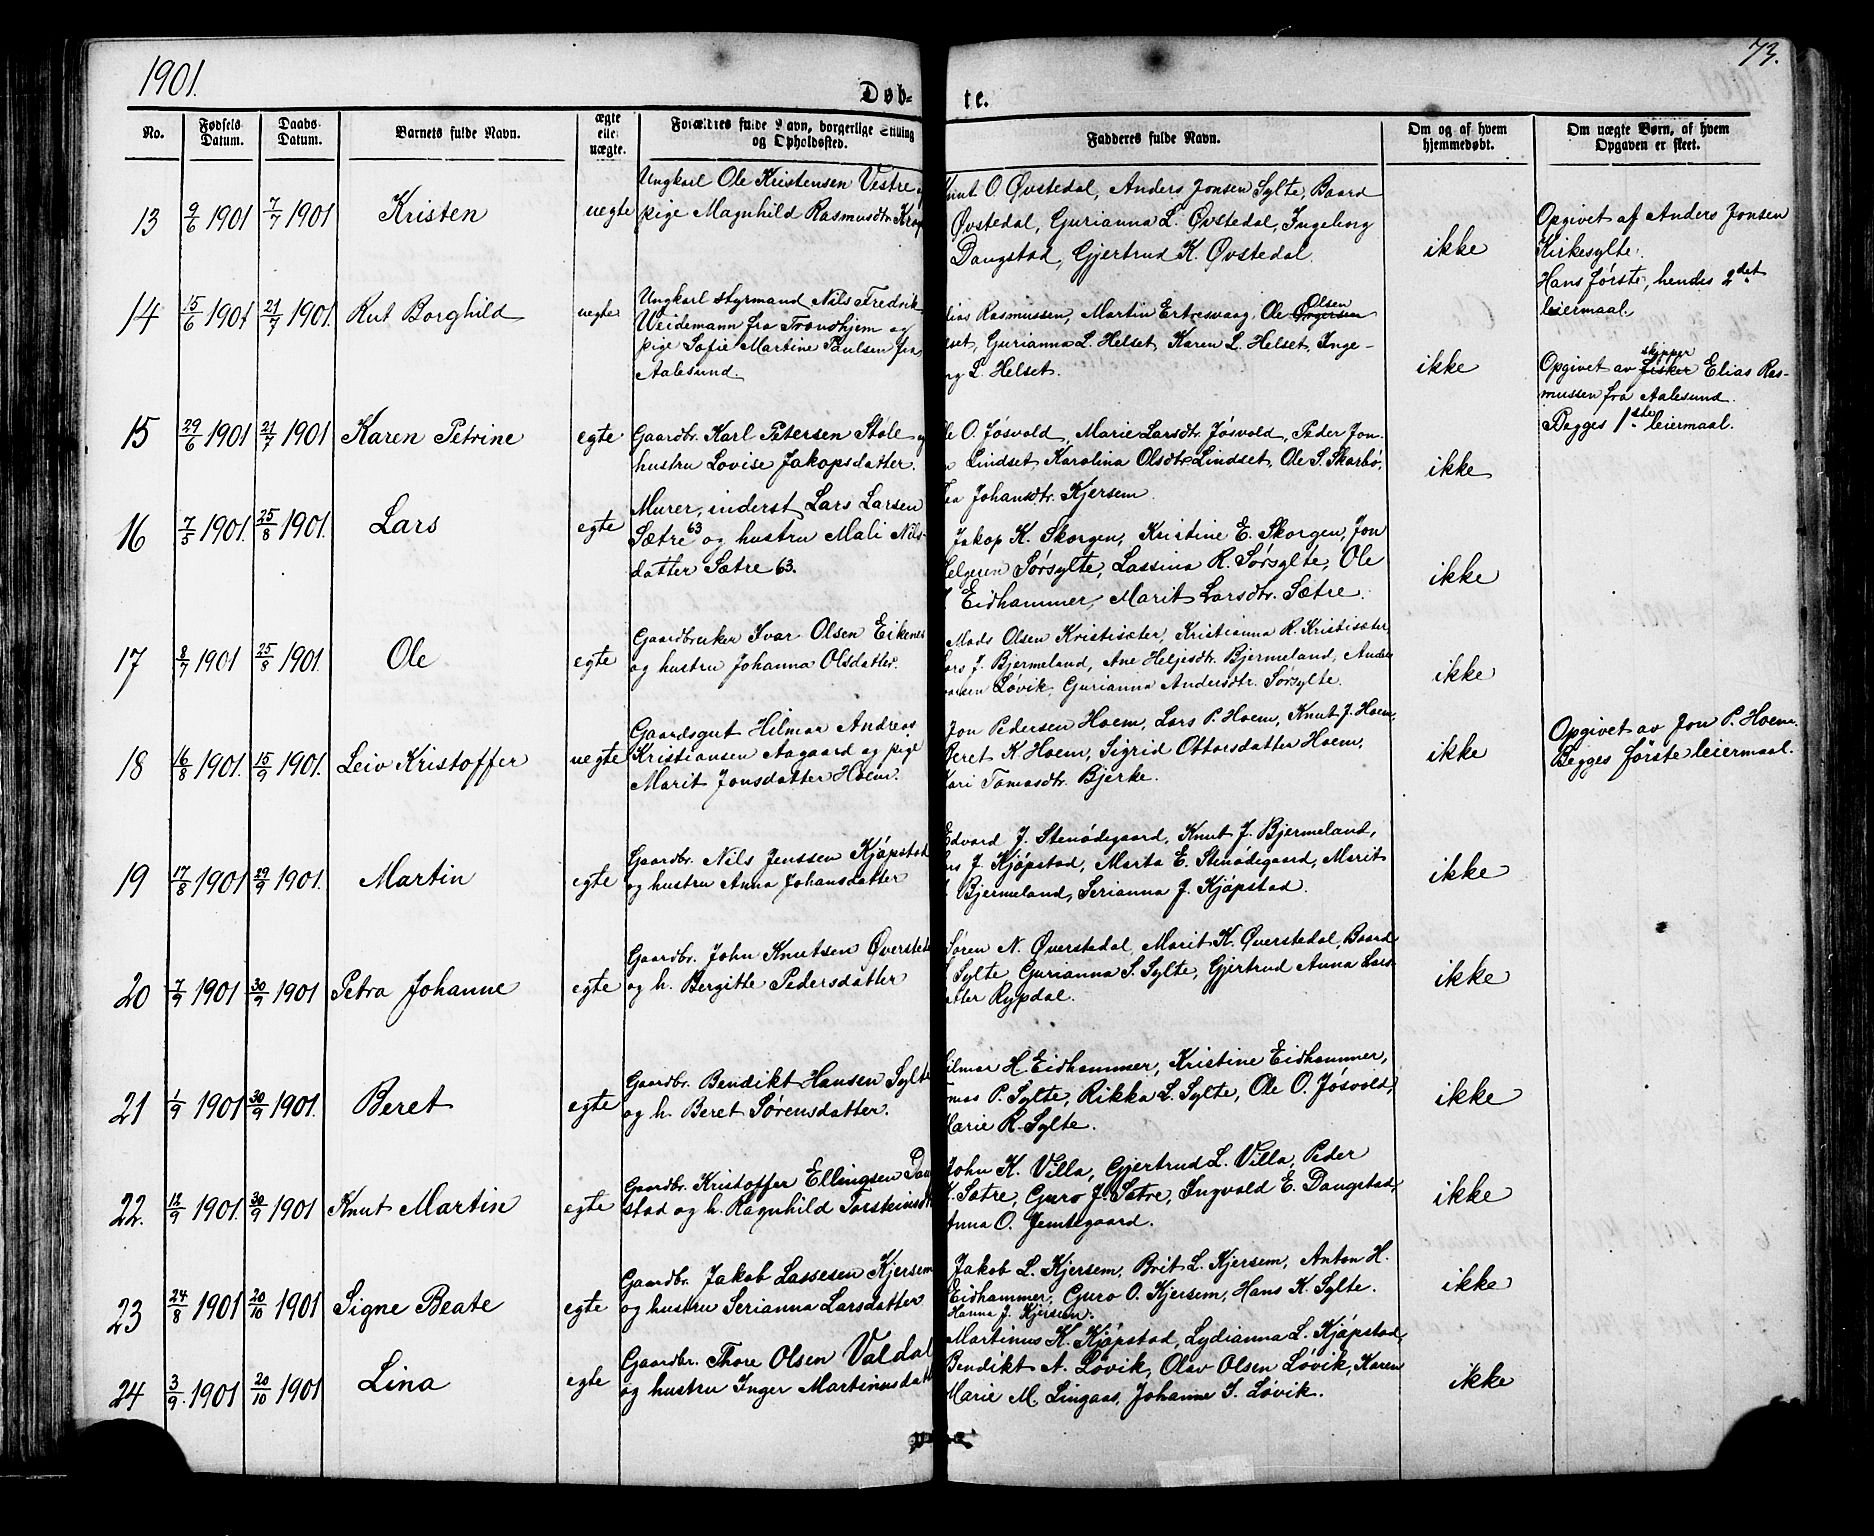 1901.
73.
Døb-
te.
No.
Fødsels Datum.
Daabs Datum.
Barnets fulde Navn.
ægte eller uægte.
Forældres fulde Navn, borgerlige Stilling og Opholdssted.
Faddernes fulde Navn.
Om og af hvem hjemmedøbt.
Om uægte Børn, af hvem Opgaven er skeet.
13 9/6 1901 7/7 1901 Kristen uegte
Ungkarl Ole Kristensen Vestre
pige Magnhild Rasmusdtr.
O. Øvstedal, Anders Jonsen Sylte, Baard
Øvstedal, Gurianna L. Øvstedal, Ingeborg
Dangstad, Gjertrud K. Øvstedal.
ikke
Opgivet af Anders Jonsen
Kirkesylte.
Hans første, hendes 2det
leiermaal.
14 15/6 1901 21/7 1901. Rut Borghild uegte
Ungkarl styrmand Nils Fredrik
Weidemann fra Trondhjem og
pige Sofie Martine Paulsen fra
Aalesund.
Rasmussen, Martin Ertresvaag, Ole Olsen
Gurianna L. Helset, Karen L. Helset, Inge-
L. Helset.
ikke
Opgivet av skipper fisker Elias Ras-
mussen fra Aalesund.
Begges 1ste leiermaal.
15 29/6 1901 21/7 1901 Karen Petrine egte
Gaardbr. Karl Petersen Stole
hustru Lovise Jakopsdatter.
O. Jøsvold, Marie Larsdtr. Jøsvold, Peder Jon-
Lindset, Karolina Olsdtr. Lindset, Ole S. Skarbø,
Johansdtr. Kjersem.
ikke
16 7/5 1901 25/8 1901. Lars egte
Murer, inderst Lars Larsen
Sætre 63 og hustru Mali Nils-
datter Sætre 63.
Jakop K. Skorgen, Kristine E. Skorgen, Jon
Sørsylte, Lassina R. Sørsylte, Ole
Eidhammer, Marit Larsdtr. Sætre.
ikke
17 8/7 1901 25/8 1901. Ole egte
Gaardbruker Ivar Olsen Eikenes
og hustru Johanna Olsdatter.
Mads Olsen Kristisæter, Kristianna R. Kristisæter,
J. Bjermeland, Ane Heljesdtr. Bjermeland, Anders
Løvik, Gurianna Andersdtr. Sørsylte.
ikke
18 16/8 1901. 15/9 1901. Leiv Kristoffer uegte
Gaardsgut Hilmar Andreas
Kristiansen Aagaard og pige
Marit Jonsdatter Hoem.
Jon Pedersen Hoem, Lars P. Hoem, Knut J. Hoem,
Beret K. Hoem, Sigrid Ottarsdatter Hoem,
Kari Tomasdtr. Bjerke.
ikke
Opgivet av Jon P. Hoem.
Begges første leiermaal.
19 17/8 1901 29/9 1901. Martin egte
Gaardbr. Nils Jenssen Kjøpstad
og hustru Anna Johansdatter
Edvard J. Stenødegaard, Knut J. Bjermeland,
J. Kjøpstad, Marta E. Stenødegaard, Marit
Bjermeland, Serianna J. Kjøpstad.
ikke
20 7/9 1901 30/9 1901 Petra Johanne egte
Gaardbr. John Knutsen Øverstedal
og h. Bergitte Pedersdatter
Søren N. Øverstedal, Marit K. Øverstedal, Baard
Sylte, Gurianna S. Sylte, Gjertrud Anna Lars-
datter Rypdal.
ikke
21 1/9 1901 30/9 1901. Beret egte
Gaardbr. Bendikt Hansen Sylte
og h. Beret Sørensdatter.
Hilmar H. Eidhammer, Kristine Eidhammer,
P. Sylte, Rikka L. Sylte, Ole O. Jøsvold,
Marie R. Sylte.
ikke
22. 12/9 1901. 30/9 1901 Knut Martin egte
Gaardbr. Kristoffer Ellingsen Dang-
stad og h. Ragnhild Torsteinsdtr.
John K. Villa, Gjertrud L. Villa, Peder
K. Sætre, Guro J. Sætre, Ingvald E. Dangstad,
Anna O. Jemtegaard.
ikke
23 24/8 1901 20/10 1901 Signe Beate egte
Gaardbr. Jakob Lassesen Kjersem
og hustru Serianna Larsdatter
Jakob L. Kjersem, Brit L. Kjersem, Anton H.
Eidhammer, Guro O. Kjersem, Hans K. Sylte.
Hanna J. Kjersem.
ikke
24 3/9 1901 20/10 1901 Lina egte
Gaardbr. Thore Olsen Valdal
og hustru Inger Martinusdatter
Martinus K. Kjøpstad, Lydianna L. Kjøpstad,
Bendikt A. Løvik, Olav Olsen Løvik, Karen
Marie M. Lingaas, Johanne I. Løvik.
ikke